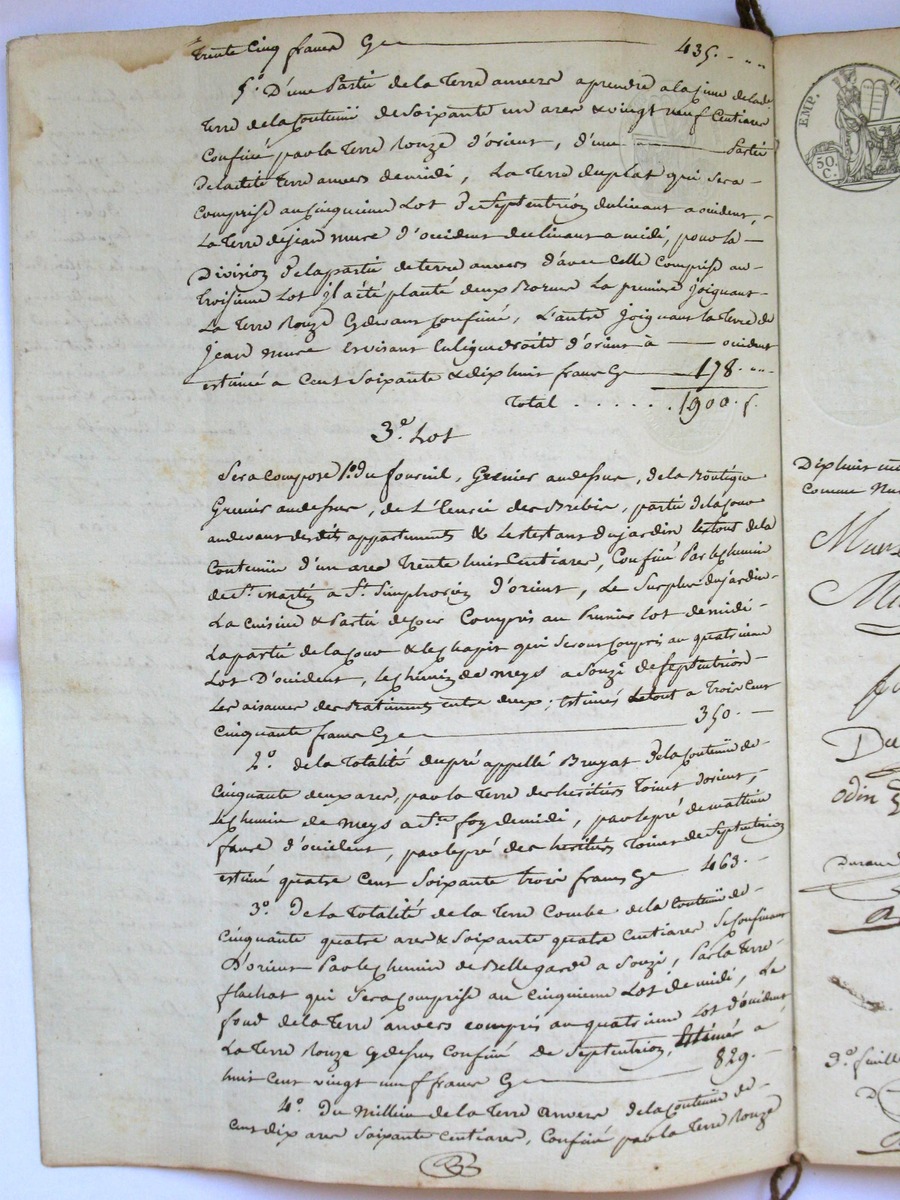 trente Cinq francs Cy 435. - " "
5°. D'une Partie de la Terre anvers a prendre a la
Terre de la Contenüe de Soixante un ares & vingt neuf Centiares
Confiné par la Terre Rouze d'orient, d'une Partie
de ladite Terre anvers de midi, La Terre du plat qui sera
Comprise au Cinquieme Lot de Septentrion declinant a occident,
La Terre de jean mure d'occident declinant a midi, pour la
Division de la partie de terre anvers d'avec celle Comprise au
troisieme Lot il a été planté deux Bornes La premiere joignant
La Terre Rouze Cy devant Confiné, L'autre joignant la Terre de
jean mure Envisant en ligne droite d'orient à occident
estimé a Cent Soixante & dix huit francs Cy 178. " "
Total . . . . . . 1900. f.
3e. Lot
Sera Composé 1°. du fournil, Grenier au dessus, de la Boutique
Grenier au dessus, de L'Ecurie des Brebis, partie de la Cour
au devant desdits appartements & le restant du jardin le tout de la
Contenüe d'un are Trente huit Centiares, Confiné Par le chemin
de St. martin a St. Simphorien d'orient, Le Surplus du jardin
La Cuisine & Partie de Cour Compris au Premier Lot de midi
La partie de la Cour & le chapit qui seront Compris au quatrieme
Lot D'occident, le chemin de meys a Souzi de Septentrion
Les aisances des Batiments entre deux; Estimés le tout a Trois Cent
Cinquante francs Cy 350. -
2°. de la Totalité du pré appellé Bruyat de la Contenüe de
Cinquante deux ares, par la Terre des heritiers Toinet d'orient,
le chemin de meys a Ste. foy de midi, par le pré de mathieu
faure d'occident, par le pré des heritiers Toinet de Septentrion
estimé quatre Cent Soixante trois francs Cy 463. -
3°. de la Totalité de la Terre Combe de la Contenüe de
Cinquante quatre ares & Soixante quatre Centiares Se Confinant
D'orient Par le Chemin de Bellegarde a Souzi, Par la Terre
flachat qui Sera Comprise au Cinquieme Lot de midi, Le
fond de la Terre anvers compris au quatrieme Lot d'occident
La Terre Rouze Cy dessus Confiné de Septentrion, Estimée a
huit Cent vingt neuf francs Cy 829. -
4°. du millieu de la Terre anvers de la Contenüe de
Cent dix ares Soixante Centiares, Confiné par la Terre Rouze
EMP.
50
C.
Dix huit
Comme
odin
Durand
3e. feuille